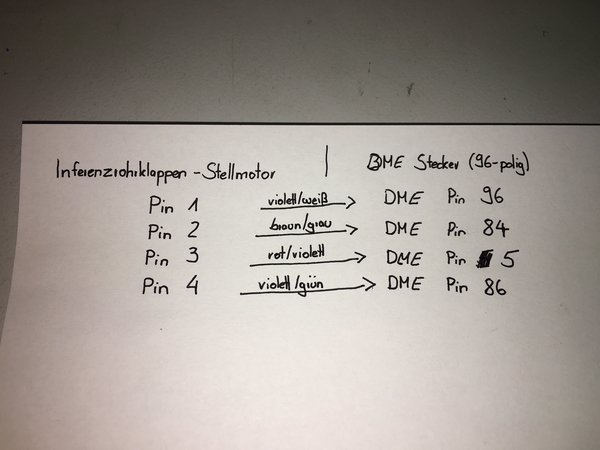 Inferenzrohrklappen - Stellmotor | DME Stecker (96-polig)
Pin 1 violett/weiß → DME Pin 96
Pin 2 braun/grau → DME Pin 84
Pin 3 rot/violett → DME Pin 5
Pin 4 violett/grün → DME Pin 86